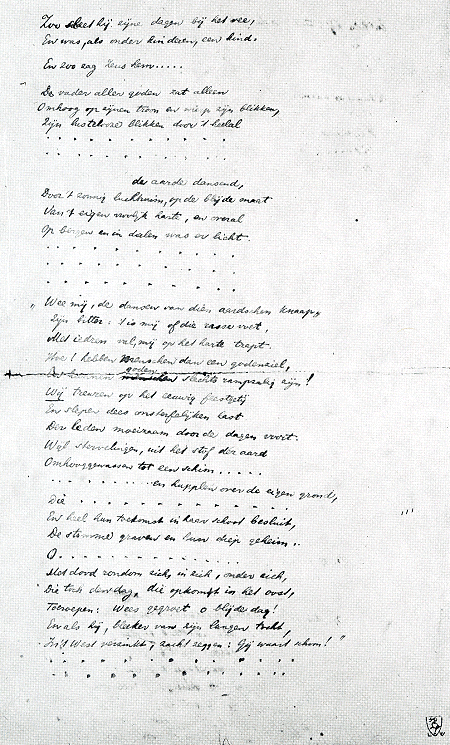 Zoo sleet hij zijne dagen bij het vee,
En was, als onder kinderen, een kind.
En zoo zag Zeus hem.....
De vader aller goden zat alleen
Omhoog op zijnen troon en wierp zijn blikken,
Zijn lustelooze blikken door 't heelal
. . . . . . . . . . .
. . . . . . . . . . .
de aarde dansend,
Door 't zonnig luchtruim, op de blijde maat
Van 't eigen vroolijk harte, en overal
Op bergen en in dalen was er licht.
. . . . . . . . . . .
. . . . . . . . . . .
. . . . . . . . . . .
„Wee mij, de dansen van dien aardschen knaap
Zijn bitter: 't is mij of die rasse voet,
Met iedren val, mij op het harte trapt.
Hoe! hebben menschen dan een godenziel,
En kunnen goden slechts rampzalig zijn!
Wij treuren op het eeuwig feestgetij
En slepen deze onsterfelijken last
Der leden moeizaam door de dagen voort.
Wijl stervelingen, uit het stof der aard
Omhooggewassen tot een schim.....
. . . . . . . . . en hupplen over de eigen grond,
Die . . . . . . . . . . .
En heel hun toekomst in haar schoot besluit,
De stomme graven en hun diep geheim..
O . . . . . . . . . . .
Met dood rondom zich, in zich, onder zich,
Die toch den dag, die opkomt in het oost,
Toeroepen: Wees gegroet o blijde dag!
En als hij, bleeker van zijn langen tocht,
In 't West verzinkt, zacht zeggen: Gij waart schoon!"
. . . . . . . . . . .
. . . . . . . . . . .